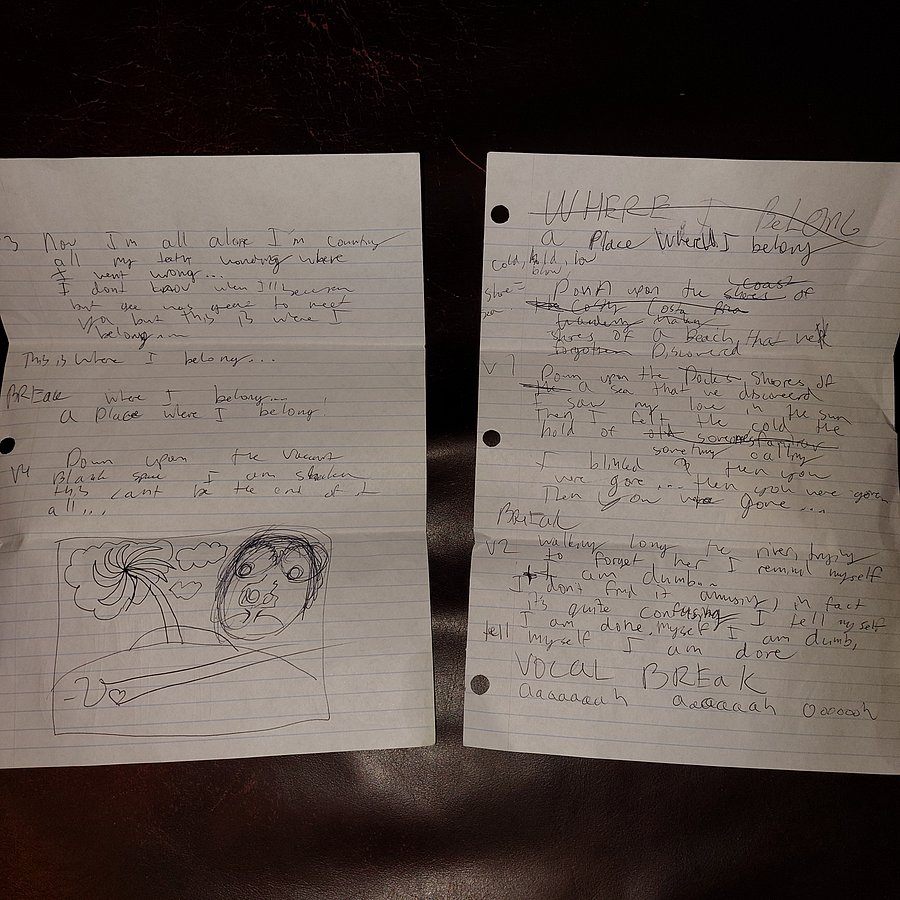 WHERE I BELONG
a Place Where I belong
cold, hold, low
blow,
shore=
Down upon the shores coast of
Costa
shores of a Beach, that we'll
forgotten Discovered
V1 Down upon the Docks shores of
the a sea that I've discovered
I saw my love in the sun
Then I felt the cold the
hold of old
something calling
I blinked & then you
were gone... then you were gone
Then you were gone...
BREAK
V2 walking long the river, trying
to forget her I remind myself
I am dumb..
I don't find it amusing, in fact
it's quite confusing I tell myself
I am done. myself I am dumb,
tell myself I am done
VOCAL BREAK
aaaaaaah aaaaaaah Oooooooh
3 Now I'm all alone I'm counting
all my wondering where
I went wrong...
I dont know when I'll
but we was to meet
but this is where I
belong....
This is where I belong...
BREAK where I belong...
a Place where I belong!
V4 Down upon the vacant
Blank space I am
this cant be the end of I
all...
-V